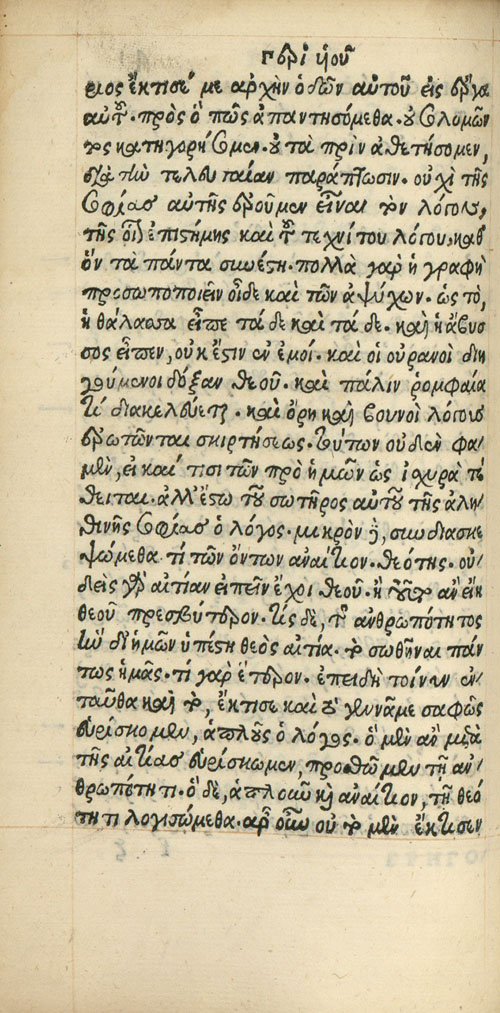 Γρηγορίου
ριος ἔκτισέ με ἀρχὴν ὁδῶν αὐτοῦ εἰς ἔργα
αὐτοῦ. πρὸς ὃ πῶς ἀπαντησόμεθα. οὐ Σολομῶν
τος κατηγορήσομεν. οὐ τὰ πρὶν ἀθετήσομεν,
διὰ τὴν τελευταίαν παράπτωσιν. οὐχὶ τῆς
Σοφίας αὐτῆς ἐροῦμεν εἶναι τὸν λόγον,
τῆς οἷον ἐπιστήμης καὶ τοῦ τεχνίτου λόγου, καθ
ὃν τὰ πάντα συνέστη. πολλὰ γὰρ ἡ γραφὴ
προσωποποιεῖν οἶδε καὶ τῶν ἀψύχων. ὡς τὸ,
ἡ θάλασσα εἶπε τάδε καὶ τάδε. καὶ ἡ ἄβυσ
σος εἶπεν, οὐκ ἔστιν ἐν ἐμοί. καὶ οἱ οὐρανοὶ διη
γούμενοι δόξαν θεοῦ. καὶ πάλιν ῥομφαία
τὶ διακελεύεται. καὶ ὄρη καὶ βουνοὶ λόγους
ἐρωτῶνται σκιρτήσεως. τούτων οὐδὲν φα
μὲν, εἰ καί τισι τῶν πρὸ ἡμῶν ὡς ἰσχυρὰ τέ
θειται. ἀλλ' ἔστω τοῦ σωτῆρος αὐτοῦ τῆς ἀλη
θινῆς Σοφίας ὁ λόγος. μικρὸν δὲ, συνδιασκε
ψώμεθα. τί τῶν ὄντων ἀναίτιον. θεότης. οὐ
δεὶς γὰρ αἰτίαν εἰπεῖν ἔχοι θεοῦ. ἢ τοῦτο ἂν εἴη
θεοῦ πρεσβύτερον. τίς δὲ, τοῦ ἀνθρωπότητος
ἣν δι' ἡμῶν ὑπέστη θεὸς αἰτία. τὸ σωθῆναι πάν
τως ἡμᾶς. τί γὰρ ἕτερον. ἐπειδὴ τοίνυν ἐν
ταῦθα καὶ τὸ, ἔκτισε καὶ τὸ γεννᾷ με σαφῶς
εὑρίσκομεν, ἁπλοῦς ὁ λόγος. ὃ μὲν ἂν μετὰ
τῆς αἰτίας εὑρίσκωμεν, προσθῶμεν τῇ ἀν
θρωπότητι. ὃ δὲ, ἁπλοῦν καὶ ἀναίτιον, τῇ θεό
τητι λογισώμεθα. ἆρ' οὖν οὐ τὸ μὲν ἔκτισεν